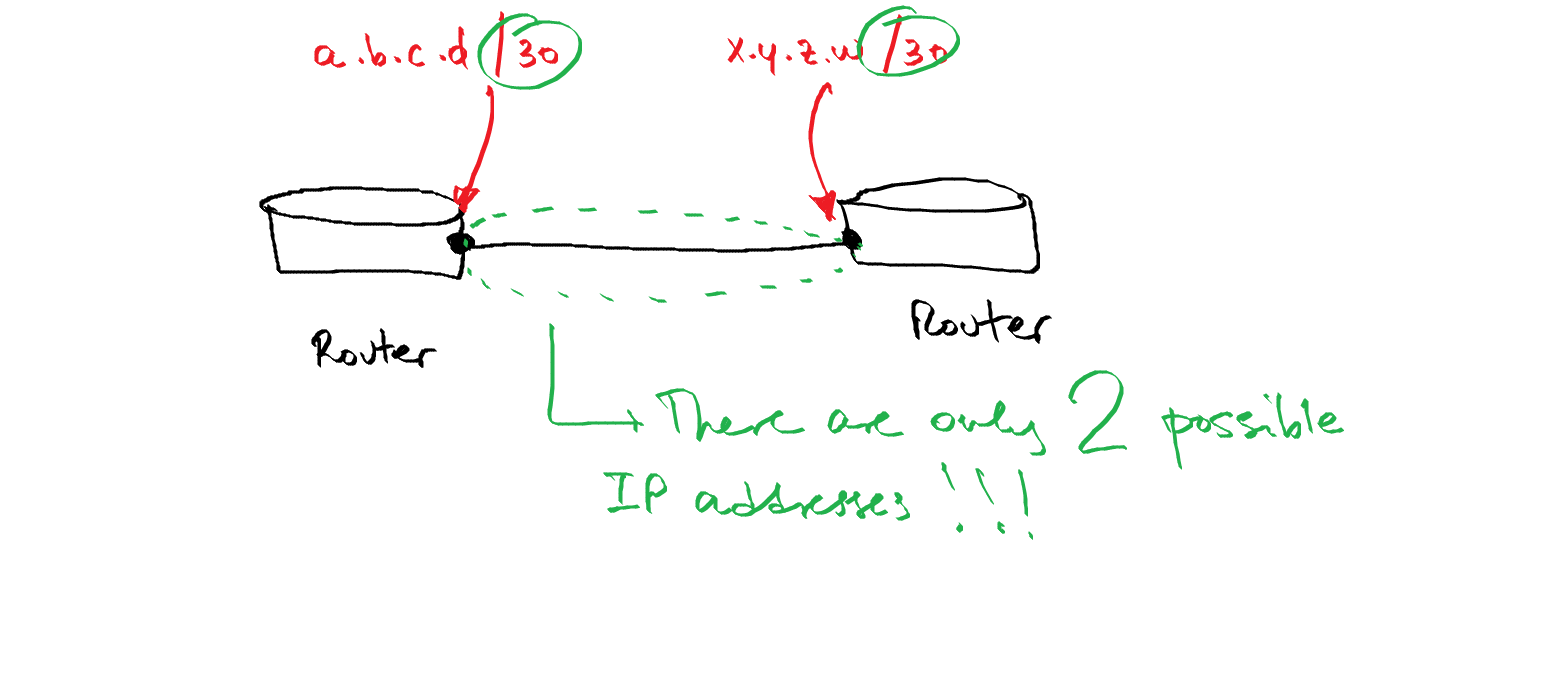 a.b.c.d/30
x.y.z.w/30
Router
Router
There are only 2 possible
IP addresses!!!